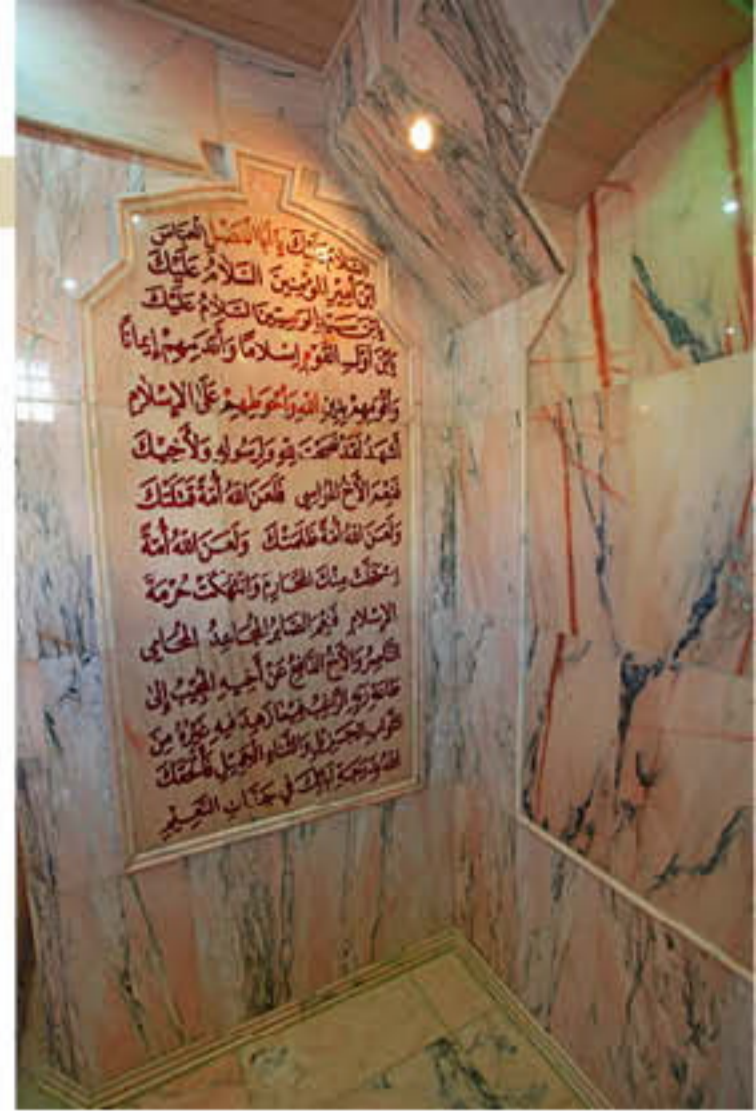 السَّلامُ عَلَيْكَ يا أَبَا الْفَضْلِ الْعَبّاسَ
ابْنَ أَمِيرِ الْمُؤْمِنِينَ السَّلامُ عَلَيْكَ
يَابْنَ سَيِّدِ الْوَصِيِّينَ السَّلامُ عَلَيْكَ
يَابْنَ أَوَّلِ الْقَوْمِ إِسْلامًا وَأَقْدَمِهِمْ إِيمانًا
وَأَقْوَمِهِمْ بِدِينِ اللهِ وَأَحْوَطِهِمْ عَلَى الإِسْلَامِ
أَشْهَدُ لَقَدْ نَصَحْتَ للهِ وَلِرَسُولِهِ وَلأَخِيكَ
فَنِعْمَ الأَخُ المُواسِي فَلَعَنَ اللهُ أُمَّةً قَتَلَتْكَ
وَلَعَنَ اللهُ أُمَّةً ظَلَمَتْكَ وَلَعَنَ اللهُ أُمَّةً
اِسْتَحَلَّتْ مِنْكَ المَحَارِمَ وَانْتَهَكَتْ حُرْمَةَ
الإِسْلامِ فَنِعْمَ الصّابِرُ المُجَاهِدُ المُحَامِي
النَّاصِرُ وَالأَخُ الدَّافِعُ عَنْ أَخِيهِ المُجِيبُ إِلَى
طَاعَةِ رَبِّهِ الرَّاغِبُ فِيمَا زَهِدَ فِيهِ غَيْرُهُ مِنَ
الثَّوَابِ الْجَزِيلِ وَالثَّنَاءِ الْجَمِيلِ فَأَلْحَقَكَ
اللهُ بِدَرَجَةِ آبَائِكَ فِي جَنَّاتِ النَّعِيمِ